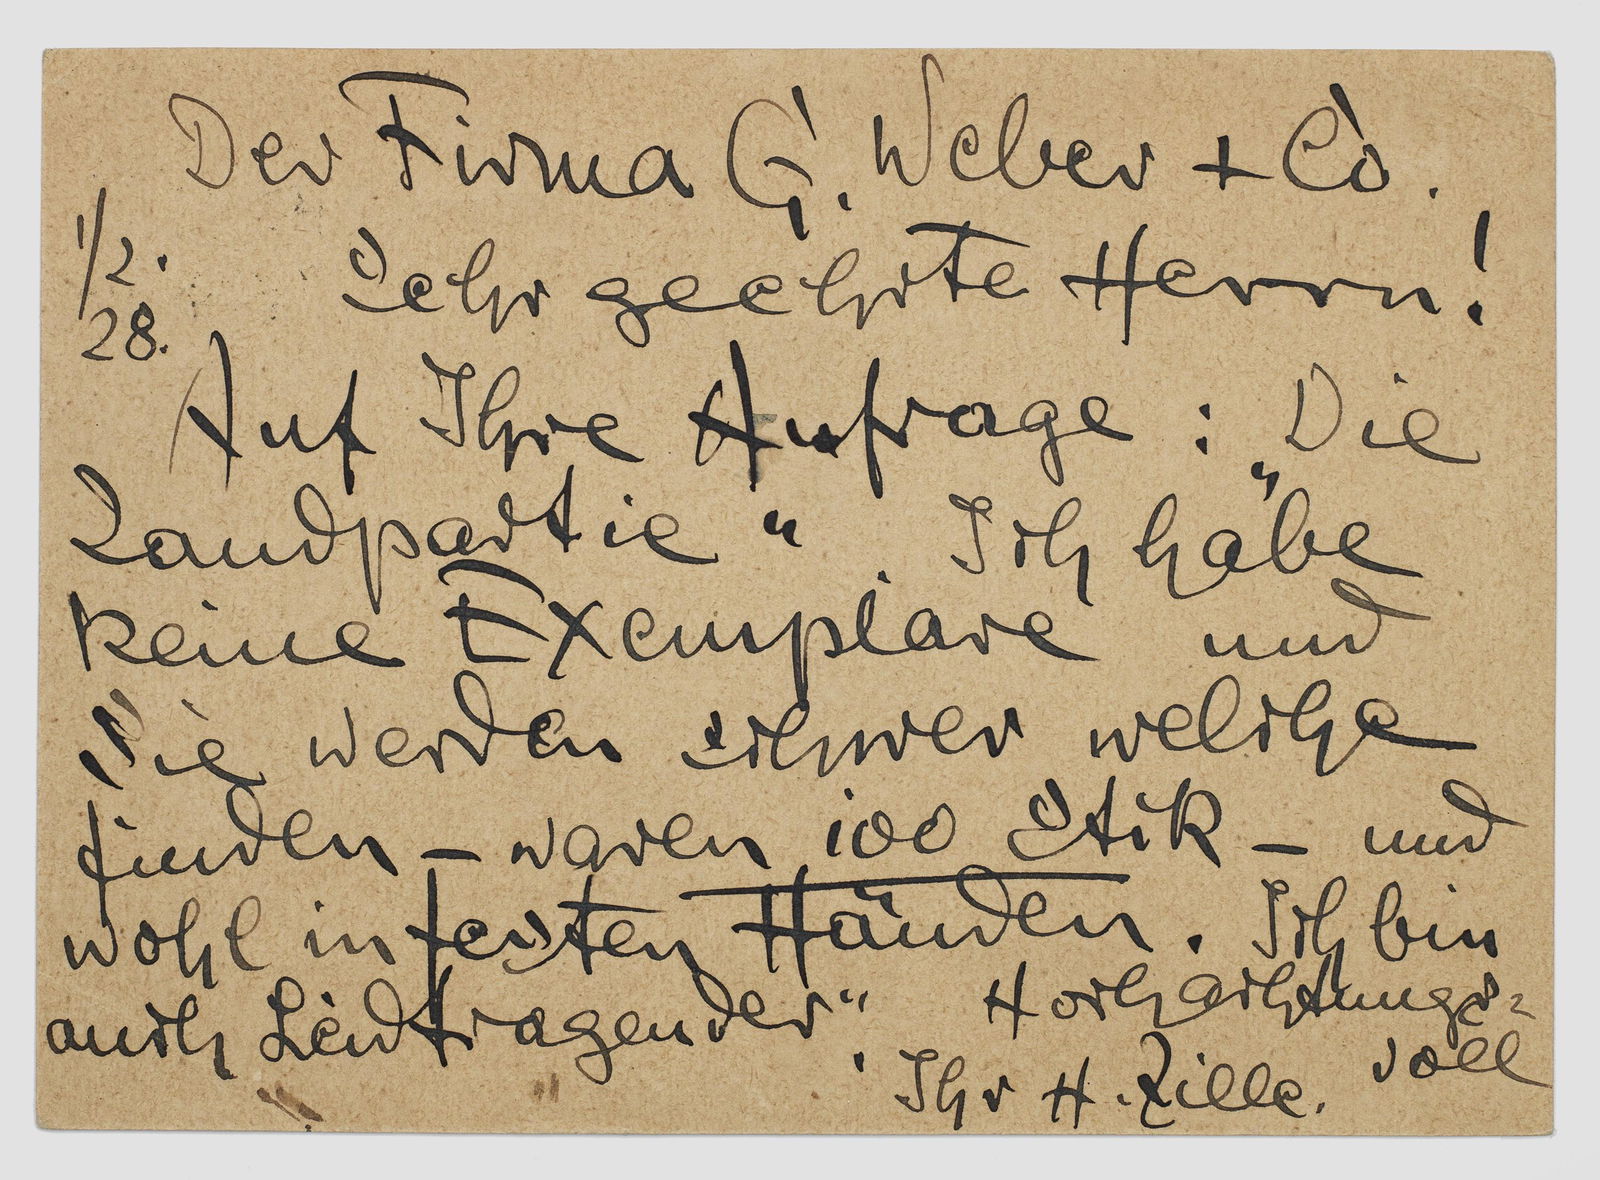 Der Firma G. Weber + Co.
1/2.
28.
Sehr geehrte Herrn!
Auf Ihre Anfrage : „Die
Landpartie“. Ich habe
keine Exemplare und
Sie werden schwer welche
finden – waren 100 Stck – und
wohl in festen Händen. Ich bin
auch „Leidtragender“. Hochachtungs-
voll
Ihr H. Zille.